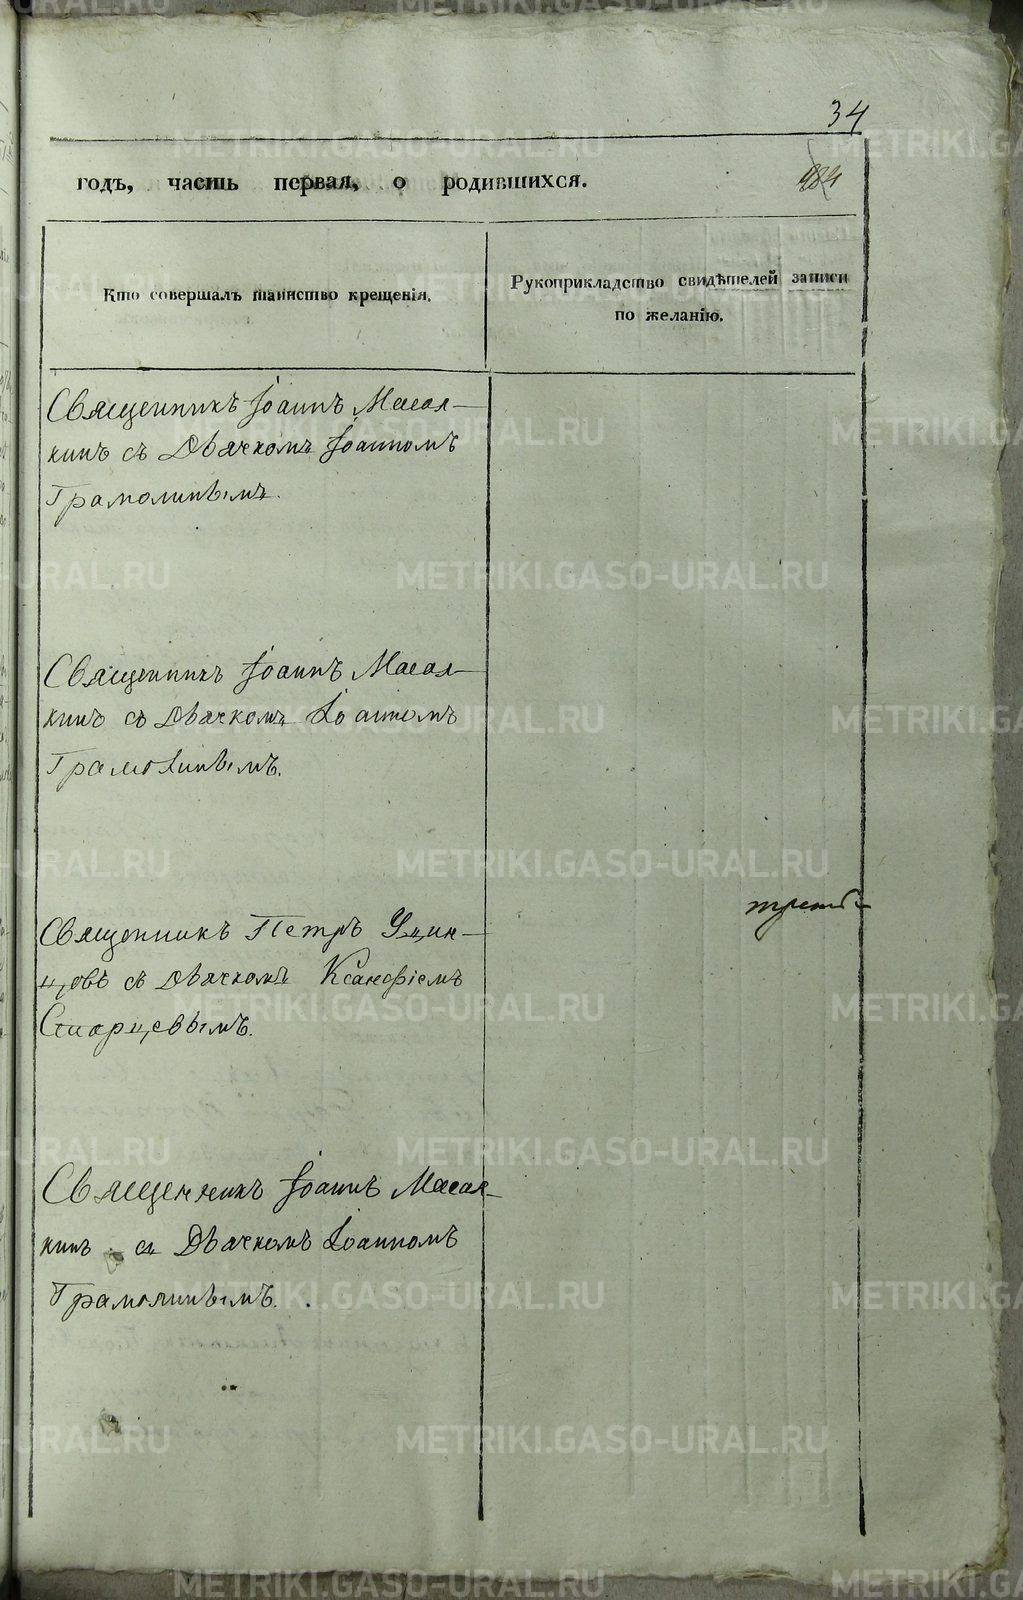 34
годъ, часть первая, о родившихся.
Кто совершалъ таинство крещенія.
Рукоприкладство свидѣтелей записи
по желанію.
Священникъ Іоаннъ Масал-
кинъ съ Дьячкомъ Іоанномъ
Грамолинымъ.
Священникъ Іоаннъ Масал-
кинъ съ Дьячкомъ Іоанномъ
Грамолинымъ.
Священникъ Петръ Удин-
цовъ съ Дьячкомъ Ксанофіемъ
Старцевымъ.
Священникъ Іоаннъ Масал-
кинъ съ Дьячкомъ Іоанномъ
Грамолинымъ.
METRIKI.GASO-URAL.RU